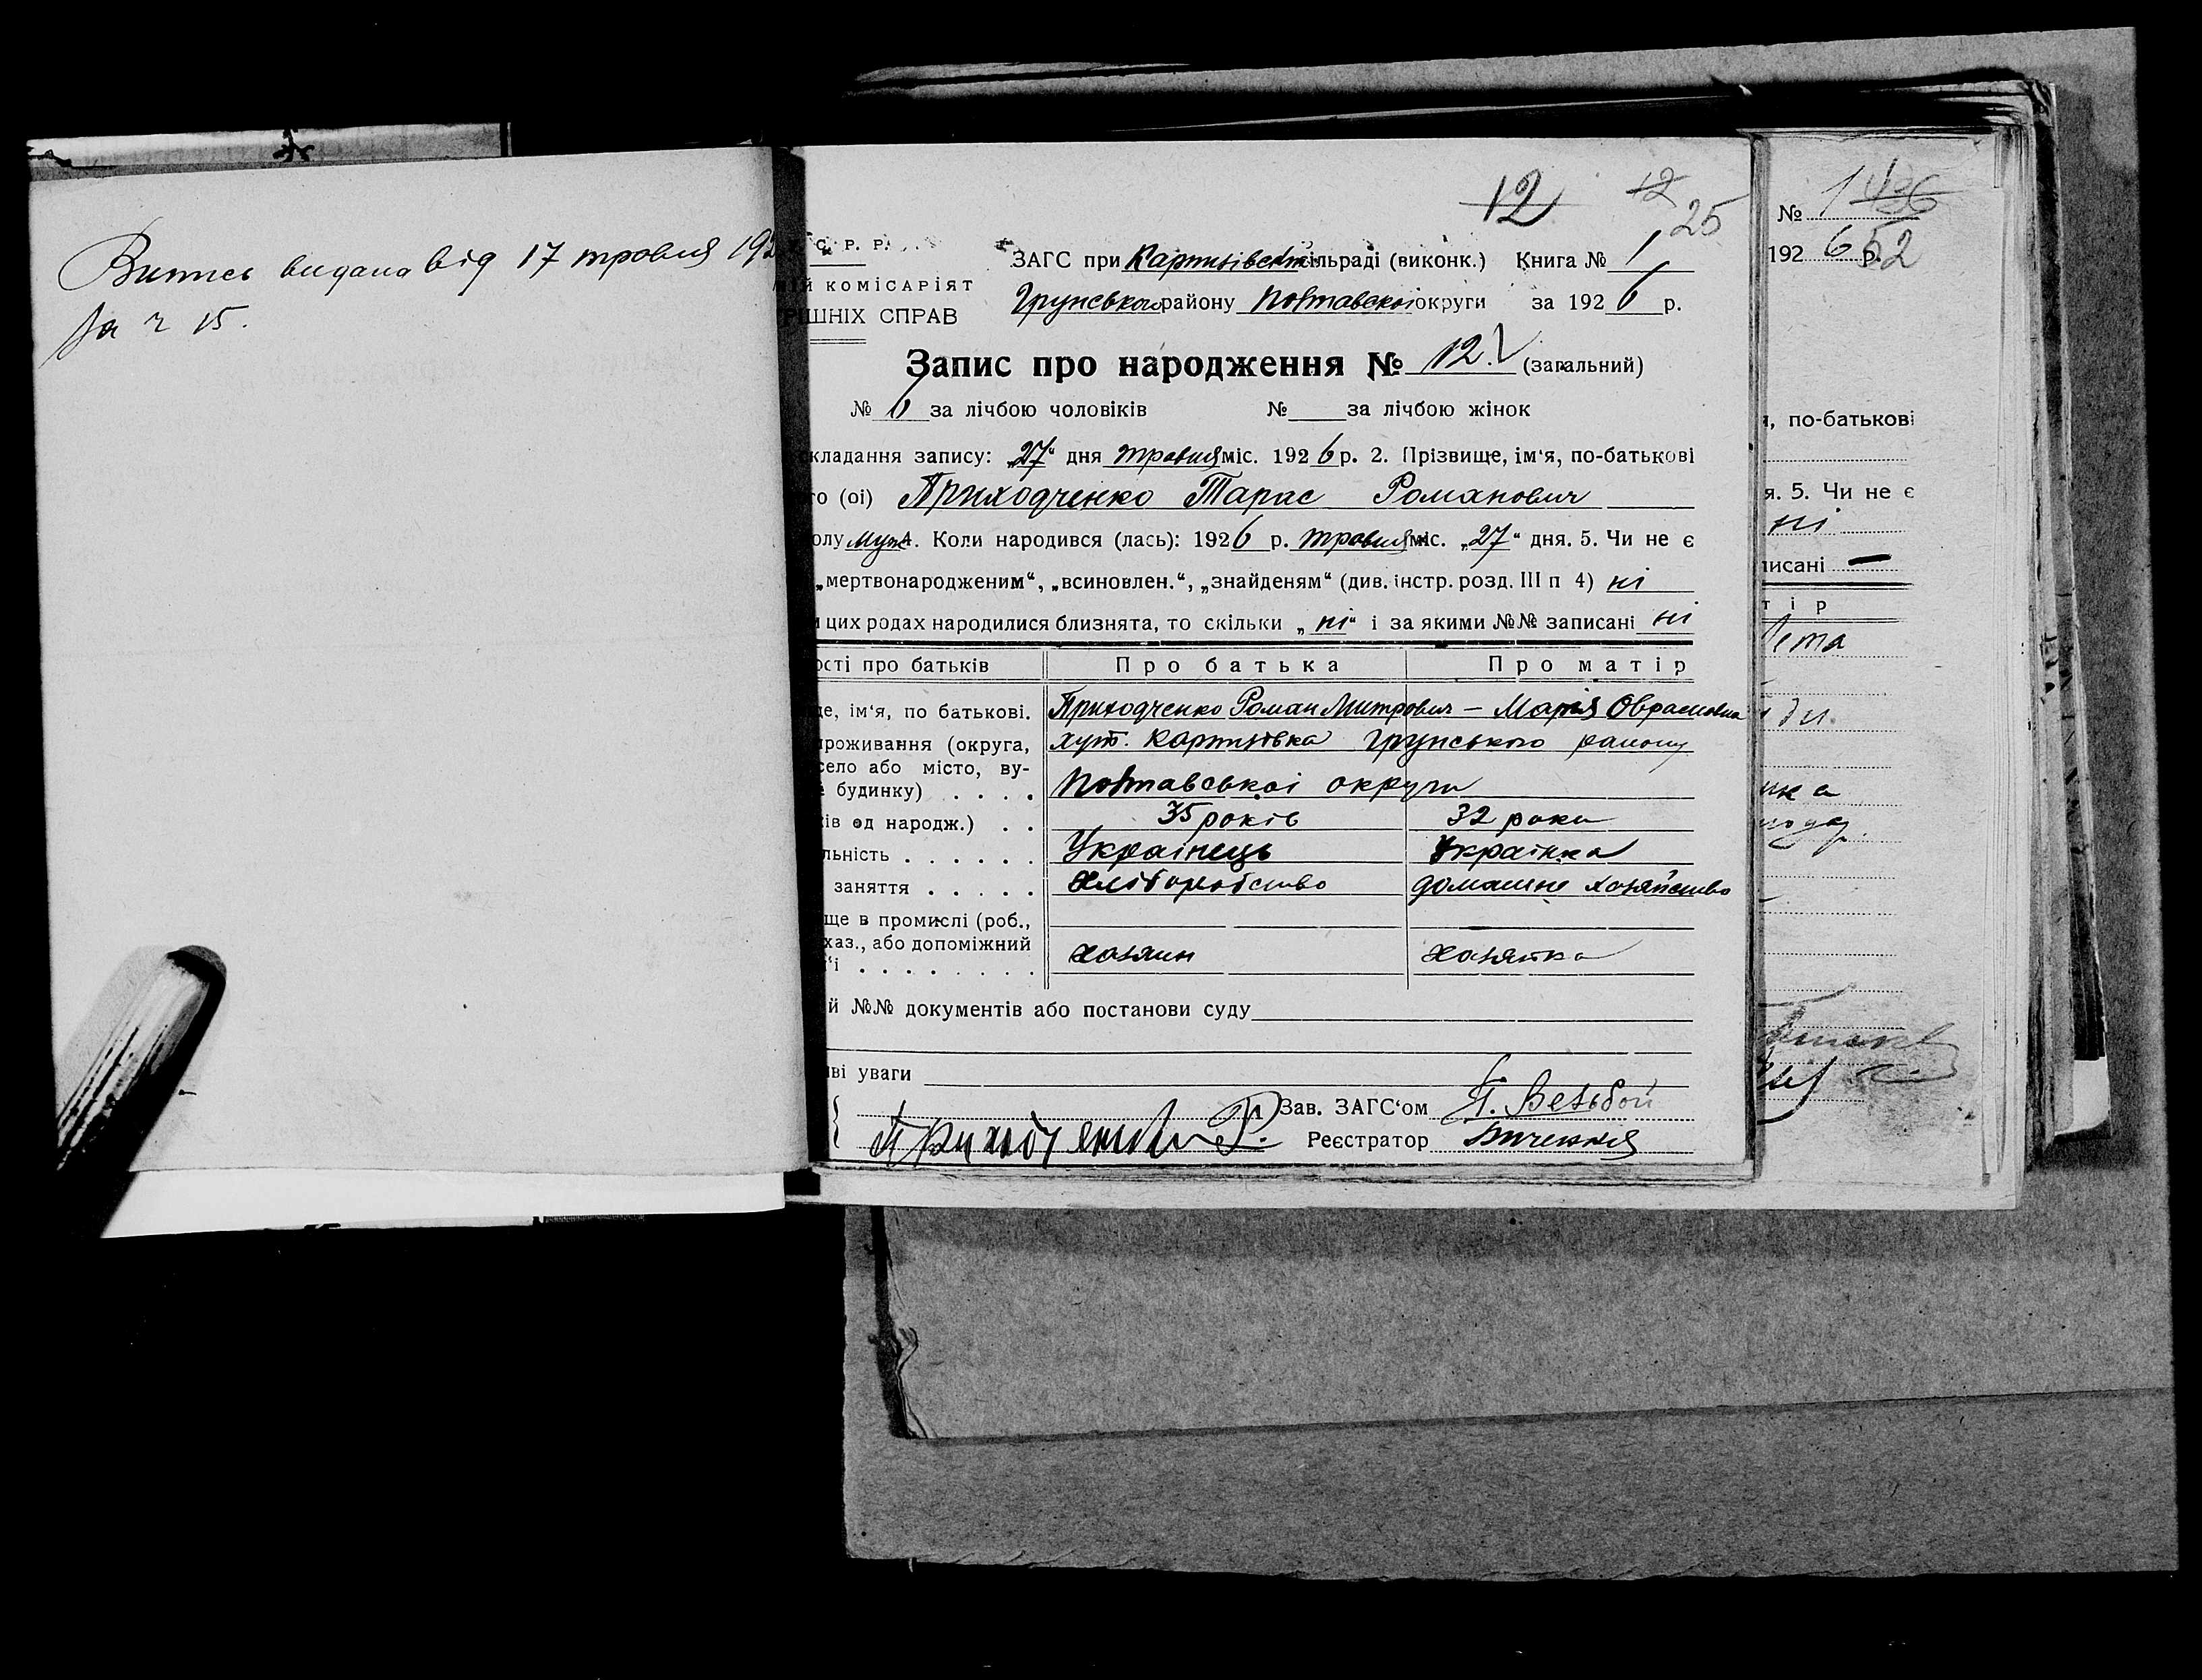 Випись видана від 17 травня 192
за ч 15.
12 12 25
С. Р. Р.
ЗАГС при Картизівській сільраді (виконк.) Книга № 1
ІЙ КОМІСАРІЯТ
Грунського району Полтавської округи за 1926 р.
РІШНІХ СПРАВ
Запис про народження № 12. (загальний)
№ 6 за лічбою чоловіків № за лічбою жінок
складання запису: „27“ дня травня міс. 1926 р. 2. Прізвище, ім‘я, по-батькові
го (ої) Приходченко Тарас Романович
олу муж. Коли народився (лась): 1926 р. травня міс. „27“ дня. 5. Чи не є
„мертвонародженим“, „всиновлен.“, „знайденям“ (див. інстр. розд. III п 4) ні
и цих родах народилися близнята, то скільки „ні“ і за якими №№ записані ні
ості про батьків Про батька Про матір
ще, ім‘я, по батькові. Приходченко Роман Митрович — Марія
проживання (округа, хут. Картизівка Грунського району
село або місто, ву-
є будинку) . . . . Полтавської округи
ків од народж.) . . 35 років 32 роки
льність . . . . . . Українець Українка
заняття . . . . . Хліборобство домашнє хозяйство
ще в промислі (роб.,
хаз., або допоміжний хазяин хазяйка
‘ї . . . . . . . .
й №№ документів або постанови суду
ві уваги
Зав. ЗАГС‘ом
Р. Реєстратор
№ 1 436
1926 р. 52
, по-батькові
я. 5. Чи не є
ні
писані —
тір